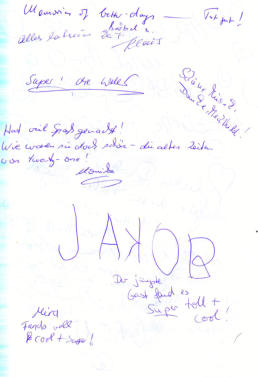 Memories of better days — Tut gut!
alles hat sein Zeit
Super! die Welle!
Schöne Musik
Danke
Hat viel Spaß gemacht!
Wie waren sie doch schön - die alten Zeiten
von Twenty-one!
Monika
JAKOB
Der jüngste
Gast fand es
Super toll +
cool!
Mira
Fands voll
cool + super!